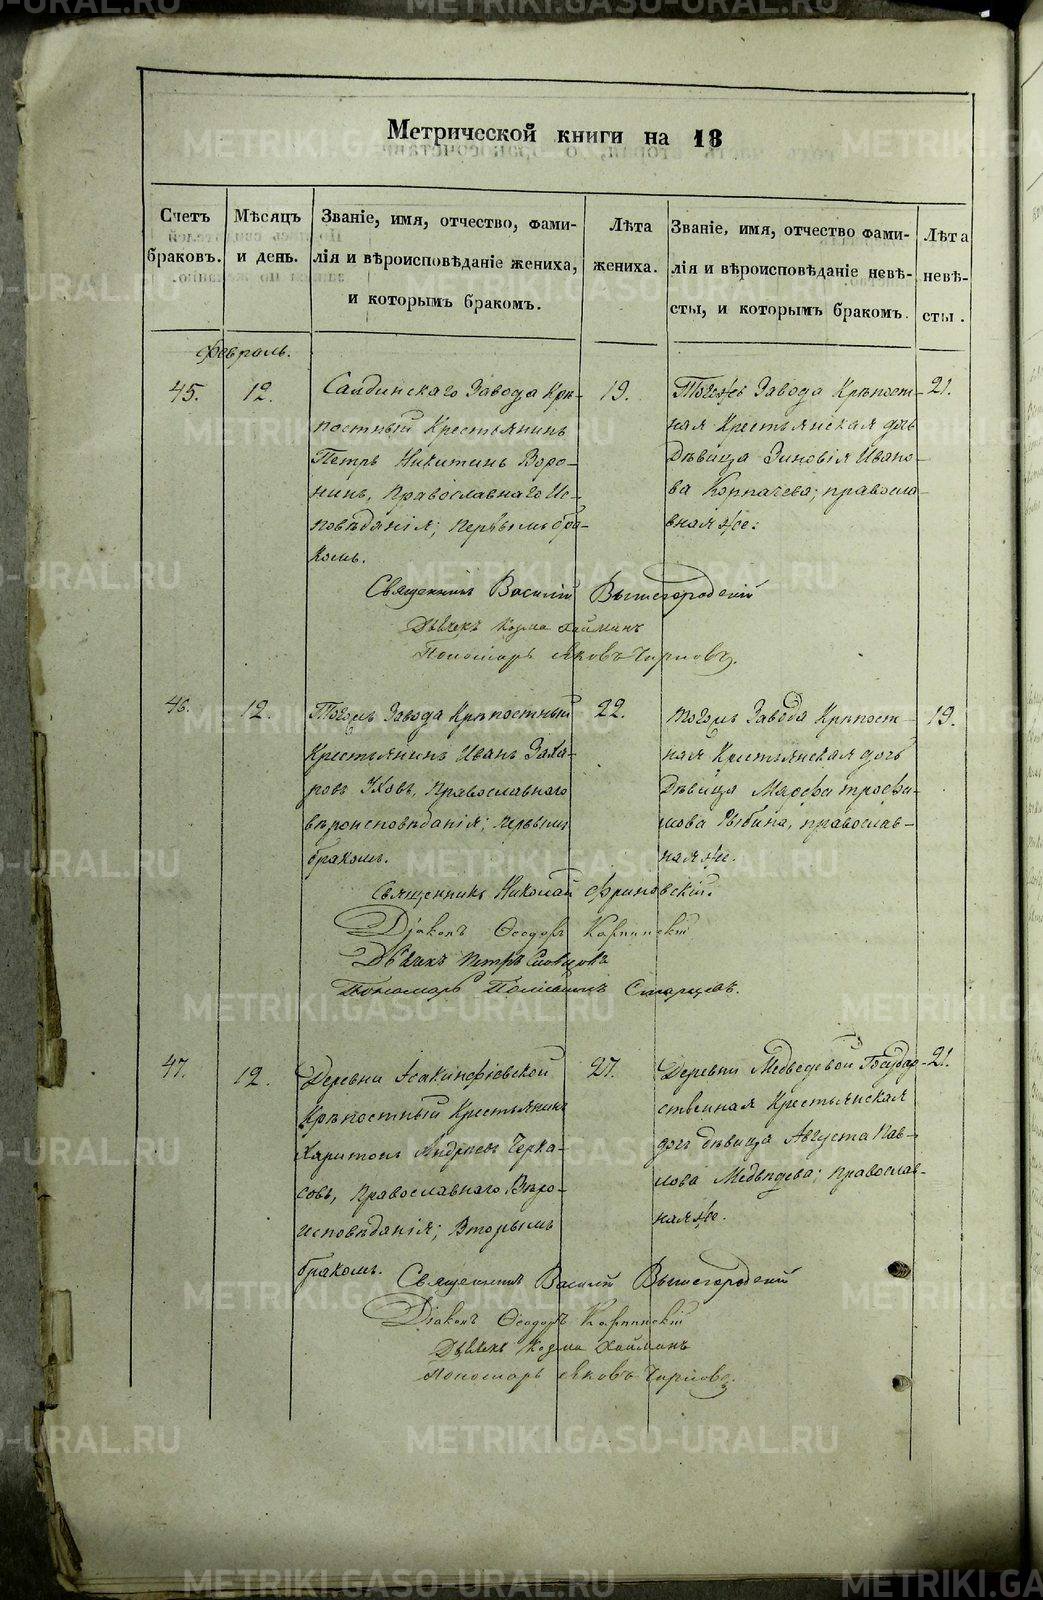 Метрической книги на 18
Счетъ браковъ.
Мѣсяцъ и день.
Званіе, имя, отчество, фами-
лія и вѣроисповѣданіе жениха,
и которымъ бракомъ.
Лѣта жениха.
Званіе, имя, отчество фами-
лія и вѣроисповѣданіе невѣ-
сты, и которымъ бракомъ.
Лѣта невѣ-
сты.
Февраль.
45.
12.
Салдинскаго Завода Крѣ-
постный Крестьянинъ
Петръ Никитинъ Воро-
нинъ, Православнаго Ис-
повѣданія; первымъ бра-
комъ.
19.
Тогоже Завода Крѣпост-
ная Крестьянская дочь
Дѣвица Зиновія Ивано-
ва Корпачева; правосла-
вная же.
21.
Священникъ Василій Вышегородскій
Дьячекъ Козма
Пономарь Яковъ
46.
12.
Тогожъ Завода Крѣпостный
Крестьянинъ Иванъ Заха-
ровъ Уховъ, Православнаго
вѣроисповѣданія; первымъ
бракомъ.
22.
Тогожъ Завода Крѣпост-
ная Крестьянская дочь
Дѣвица Марфа Трофи-
мова Рыбина, православ-
ная же.
19.
Священникъ Николай Фриновскій.
Діаконъ Ѳеодоръ Карпинскій
Дьячекъ Петръ Словцовъ
Пономарь Старцевъ.
47.
12.
Деревни Іоакинфіевской
Крѣпостный Крестьянинъ
Харитонъ Андреевъ Черка-
совъ, Православнаго Вѣро-
исповѣданія; Вторымъ
бракомъ.
27.
Деревни Медведевой Государ-
ственная Крестьянская
дочь дѣвица Августа Пав-
лова Медвѣдева; Православ-
ная же.
21.
Священникъ Василій Вышегородскій
Діаконъ Ѳеодоръ Карпинскій
Дьячекъ Козма
Пономарь Яковъ
METRIKI.GASO-URAL.RU